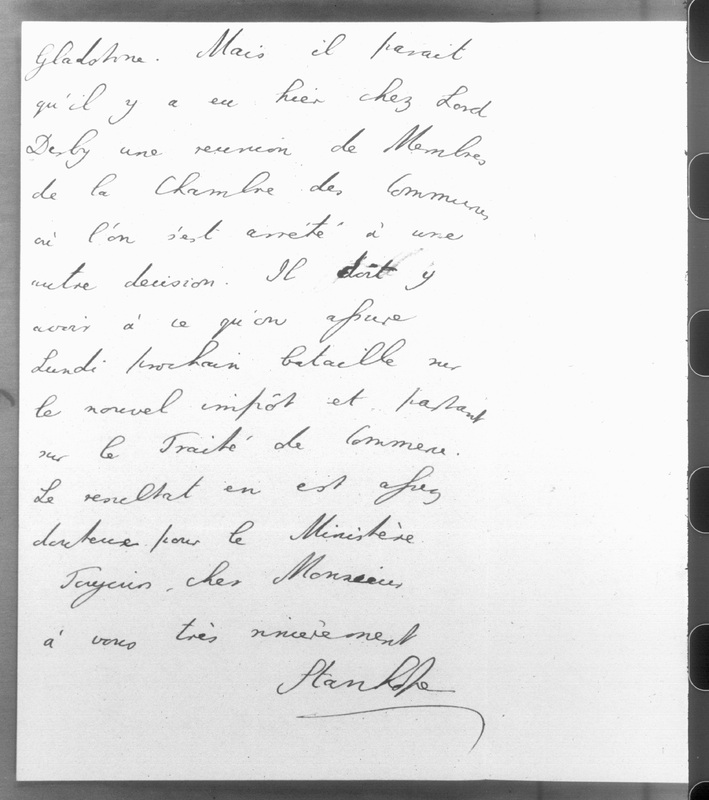 Gladstone. Mais il parait
qu'il y a eu hier chez Lord
Derby une reunion de Membres
de la Chambre des Communes
où l'on s'est arrêté à une
autre decision. Il doit y
avoir à ce qu'on assure
Lundi prochain bataille sur
le nouvel impôt et partant
sur le Traité de Commerce.
Le resultat en est assez
douteux pour le Ministère.
Toujours, cher Monsieur,
à vous très sincèrement
Stanhope